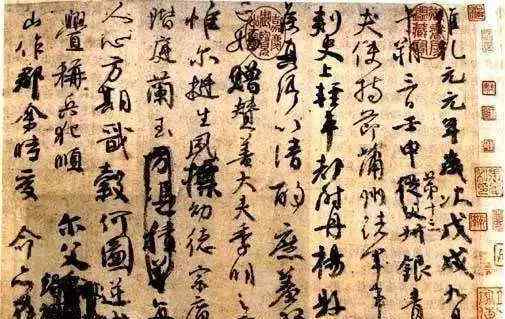 維乾元元年歲次戊戌九月
午朔三日壬申第十三叔銀青
夫使持節蒲州諸軍事
刺史上輕車都尉丹楊縣
侯真卿以清酌庶羞
亡姪贈贊善大夫季明之
惟爾挺生夙標幼德宗廟
階庭蘭玉方憑積善每
人心方期戩穀何圖逆賊
釁稱兵犯順爾父
山作郡余時受命亦在